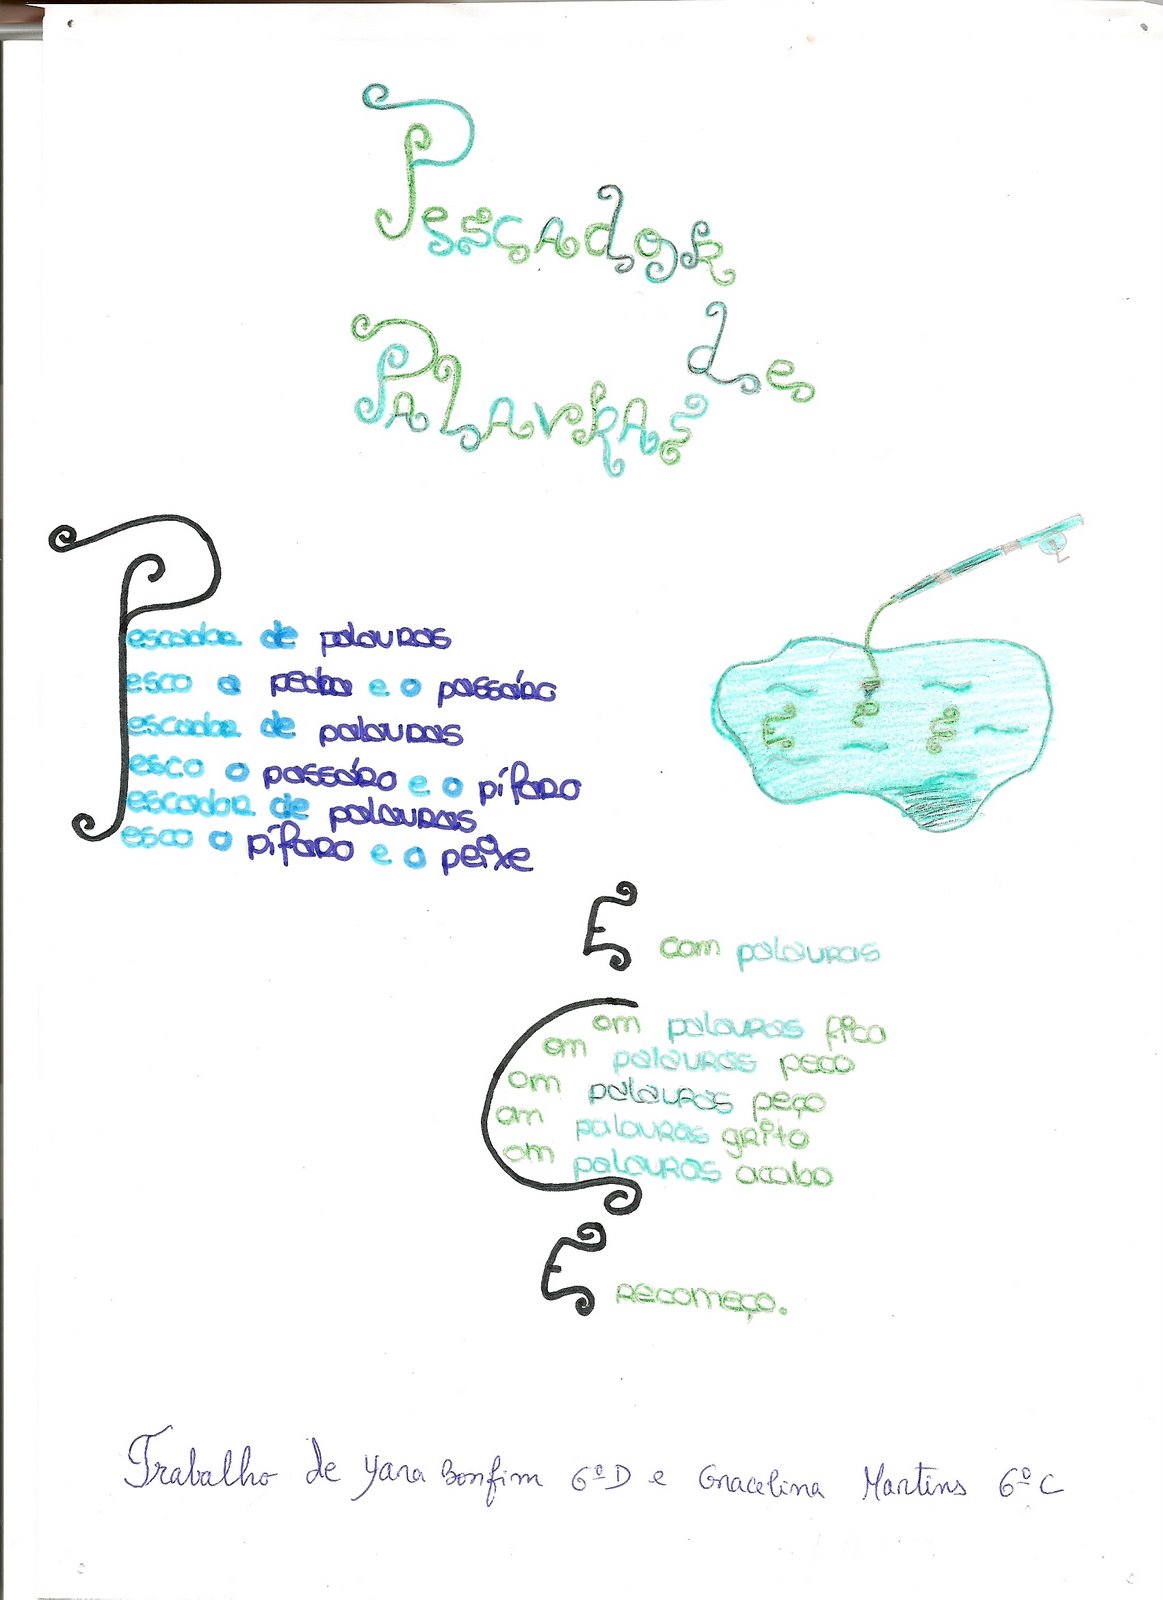 Pescador
de
Palavras
Pescador de palavras
Pesco a pedra e o passáro
Pescador de palavras
Pesco o passáro e o pífaro
Pescador de palavras
Pesco o pífaro e o peixe
E com palavras
Com palavras fico
Com palavras peco
Com palavras peço
Com palavras grito
Com palavras acabo
E recomeço.
Trabalho de Yara Bomfim 6ºD e Gracelina Martins 6ºC